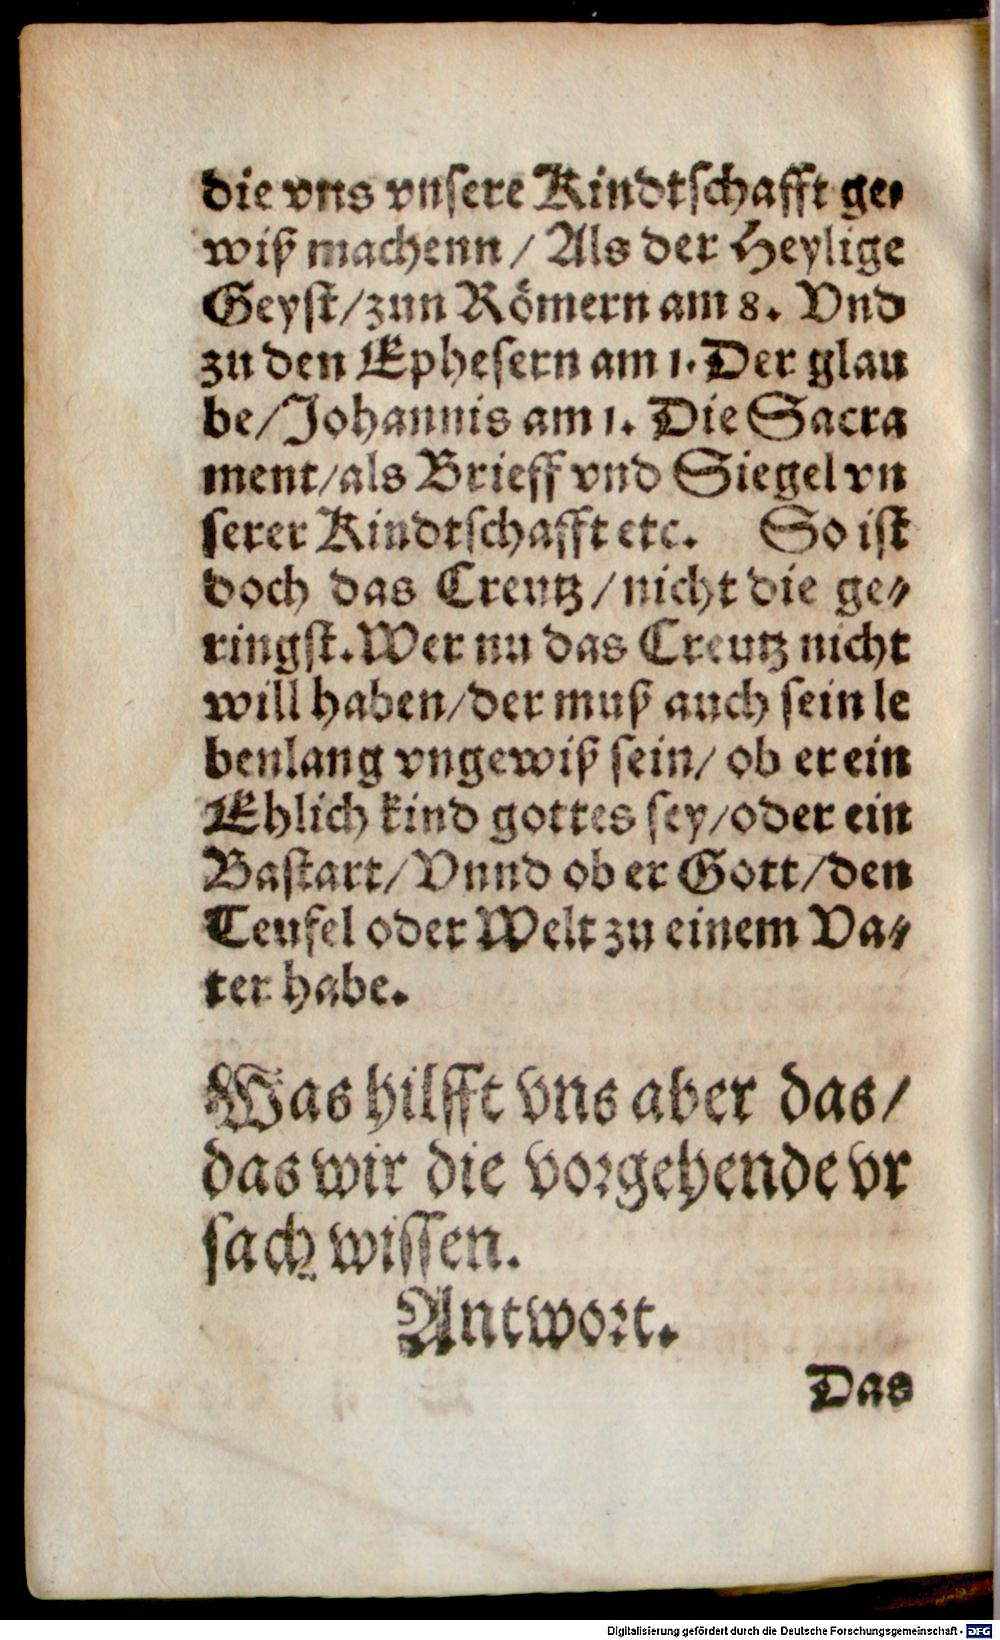 die vns vnsere Kindtschafft ge⸗
wiß machenn / Als der Heylige
Geyst/zun Römern am 8. Vnd
zu den Ephesern am 1. Der glau
be/Johannis am 1. Die Sacra
ment/als Brieff vnd Siegel vn
serer Kindtschafft etc. So ist
doch das Creutz / nicht die ge⸗
ringst. Wer nu das Creutz nicht
will haben/der muß auch sein le
benlang vngewiß sein/ ob er ein
Ehlich kind gottes sey/oder ein
Bastart/ Vnnd ob er Gott/den
Teufel oder Welt zu einem Va⸗
ter habe.
Was hilfft vns aber das/
das wir die vorgehende vr
sach wissen.
Antwort.
Das
Digitalisierung gefördert durch die Deutsche Forschungsgemeinschaft - DFG